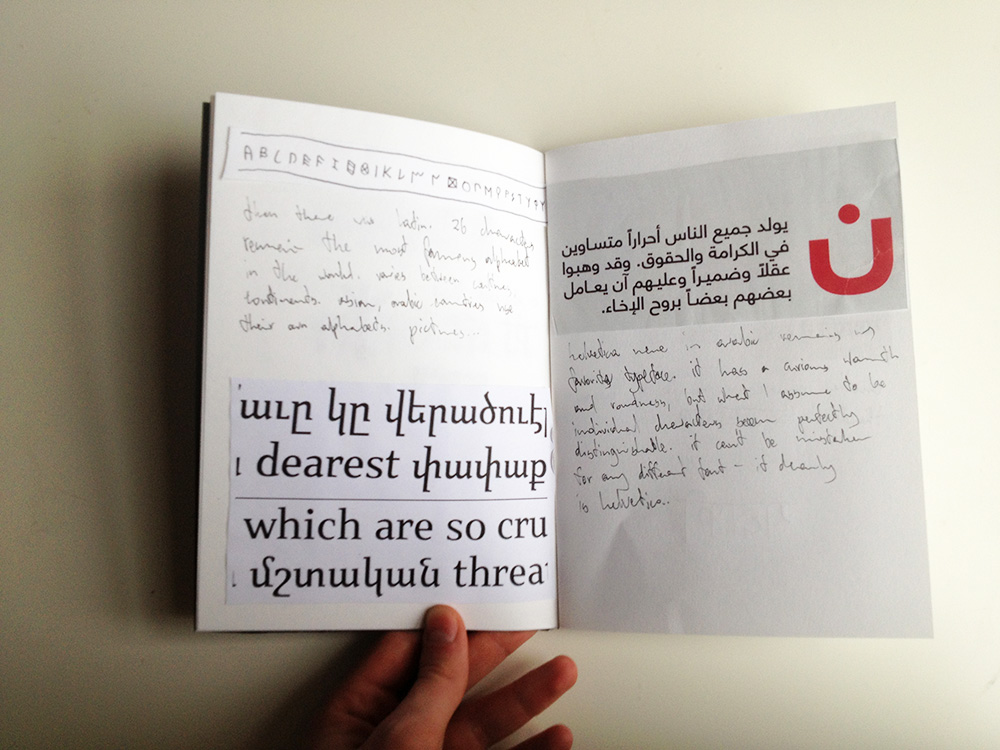 then there was latin. 26 characters
remain the most famous alphabet
in the world. varies between
continents. asian, arabic countries use
their own alphabets. pictures...
աւը կը վերածուէ
dearest փափաք
which are so cru
մշտական threa
ن
يولد جميع الناس أحراراً متساوين
في الكرامة والحقوق. وقد وهبوا
عقلاً وضميراً وعليهم آن يعامل
بعضهم بعضاً بروح الإخاء.
helvetica neue in arabic remains my
favorite typeface. it has a curious warmth
and roundness, but what I assume to be
individual characters seem perfectly
distinguishable. it can't be mistaken
for any different font – it clearly
is helvetica..